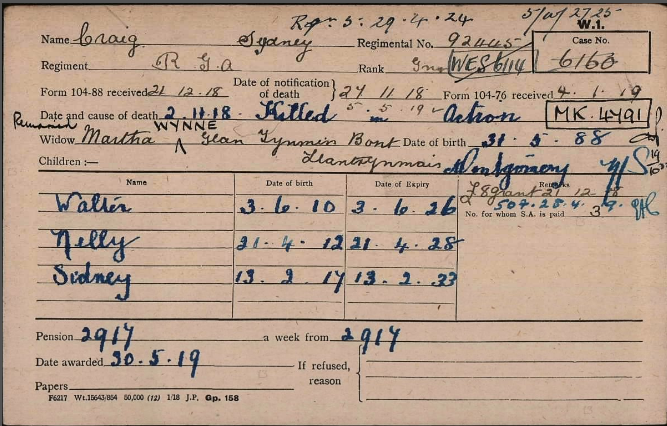 Rep. 5. 29. 4. 24
5/a/2725
W.1.
Name Craig Sydney Regimental No. 92445 Case No.
Regiment R G A Rank Gnr WES 6/14 6160
Form 104-88 received 21 12.18 Date of notification of death 27 11 18 Form 104-76 received 4. 1. 19
5. 5. 19
Date and cause of death 2. 11. 18. Killed in Action MK. 4791
Remarried WYNNE
Widow Martha Glan Tynmin Bont Date of birth 31. 5. 88
Children :— Llanerynmais Montgomery
Name Date of birth Date of Expiry Remarks
£8 grant 21 12 18
Walter 3. 6. 10 3. 6. 26
No. for whom S.A. is paid 3
Nelly 21. 4. 12 21. 4. 28
Sidney 13. 2. 17 13. 2. 33
Pension 29/7 a week from 29/7
Date awarded 30. 5. 19 If refused, reason
Papers
F6217 Wt.15643/854 50,000 (12) 1/18 J.P. Gp. 158